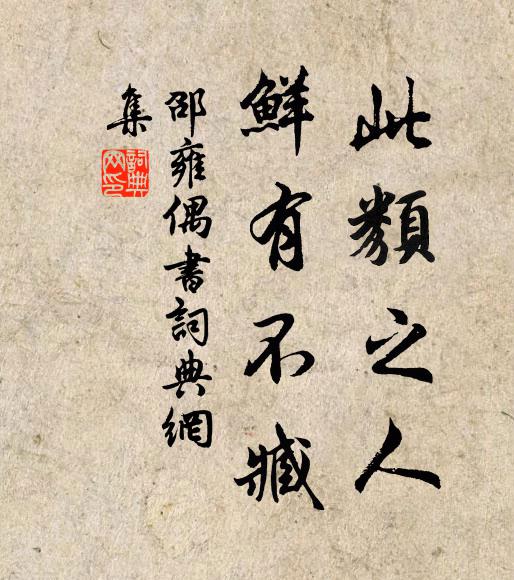 此類之人
鮮有不臧
邵雍偶書詞典網
集
詞典
网印